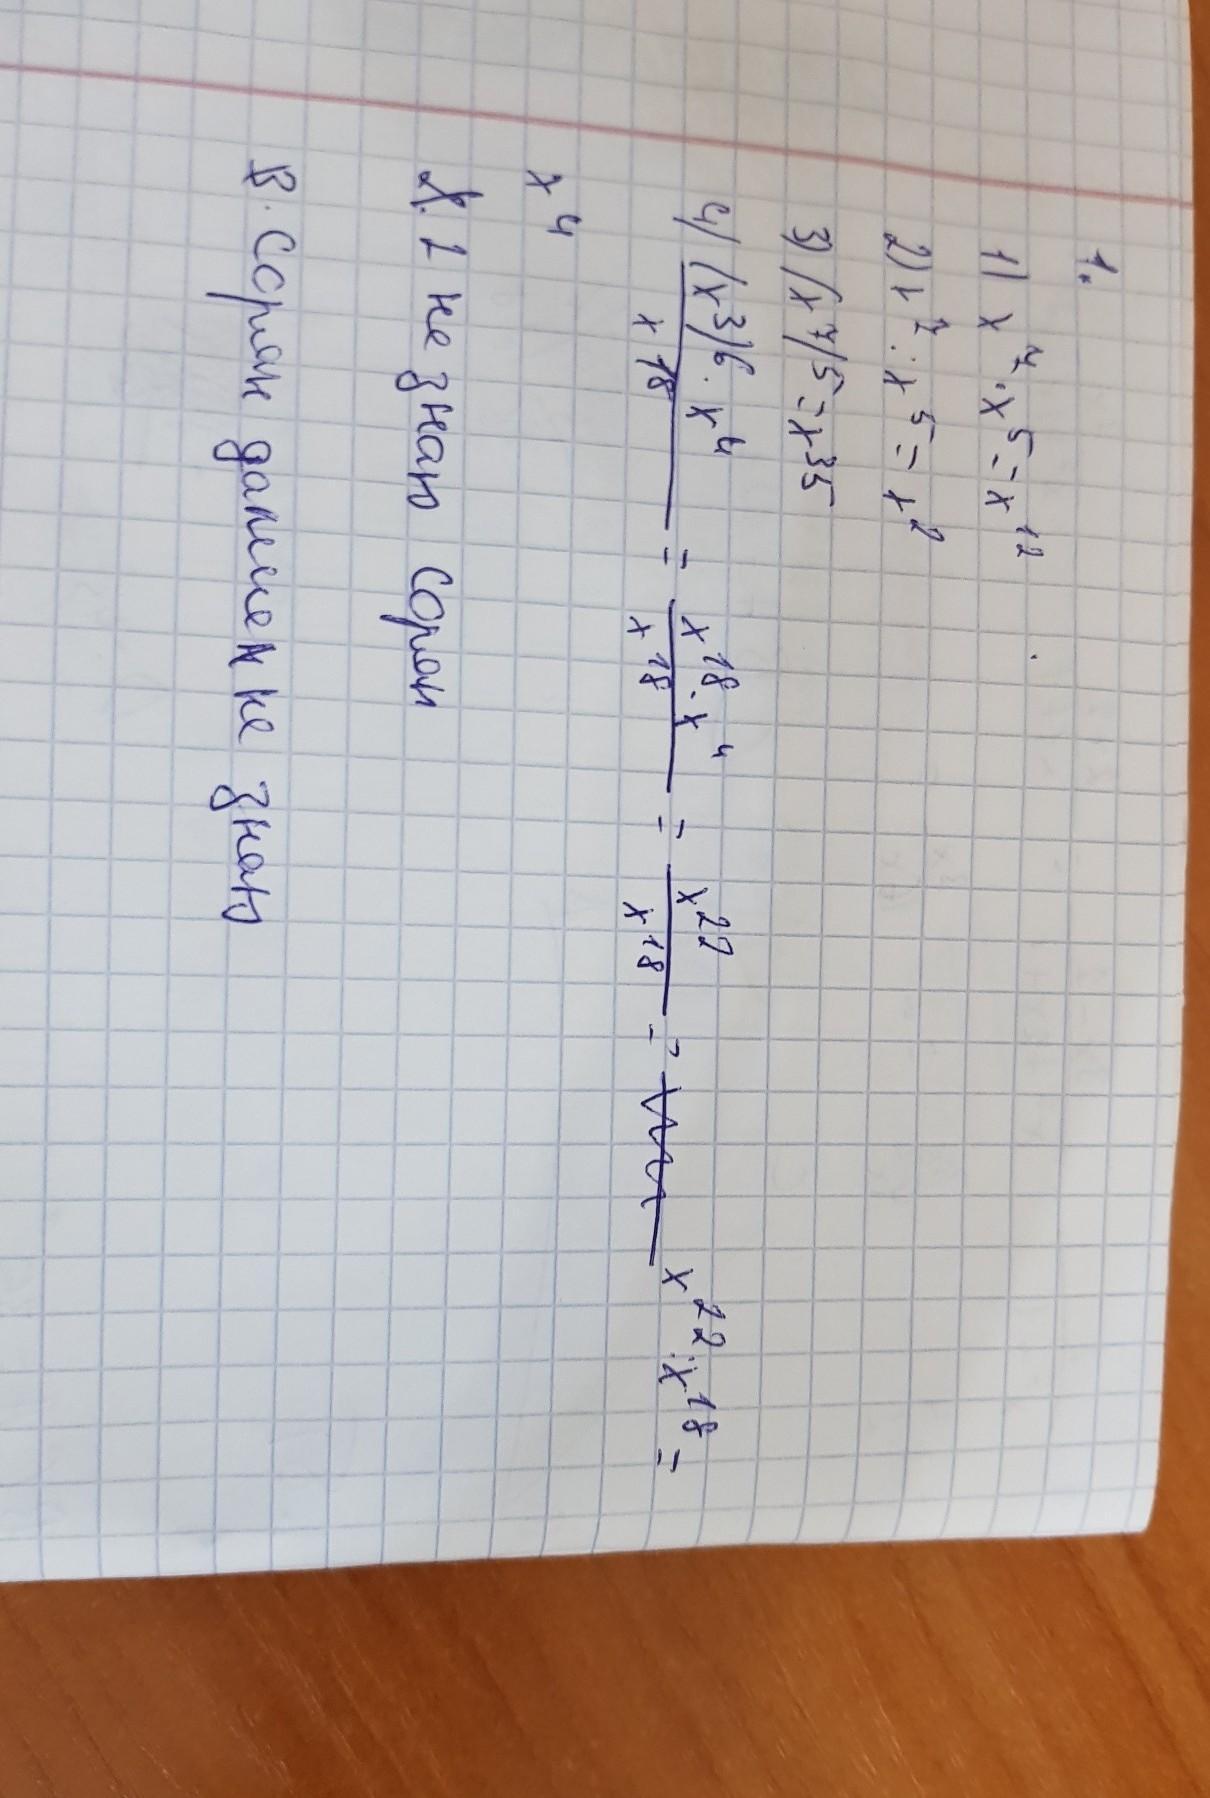 1.
1) x⁷ · x⁵ = x¹²
2) x⁷ : x⁵ = x²
3) (x⁷)5 = x35
4) (x³)6 · x⁴ / x18 = x18 · x⁴ / x18 = x22 / x18 = x²² : x¹⁸ =
x⁴
2. 1 не знаю сорян
В. Сорян дальше не знаю